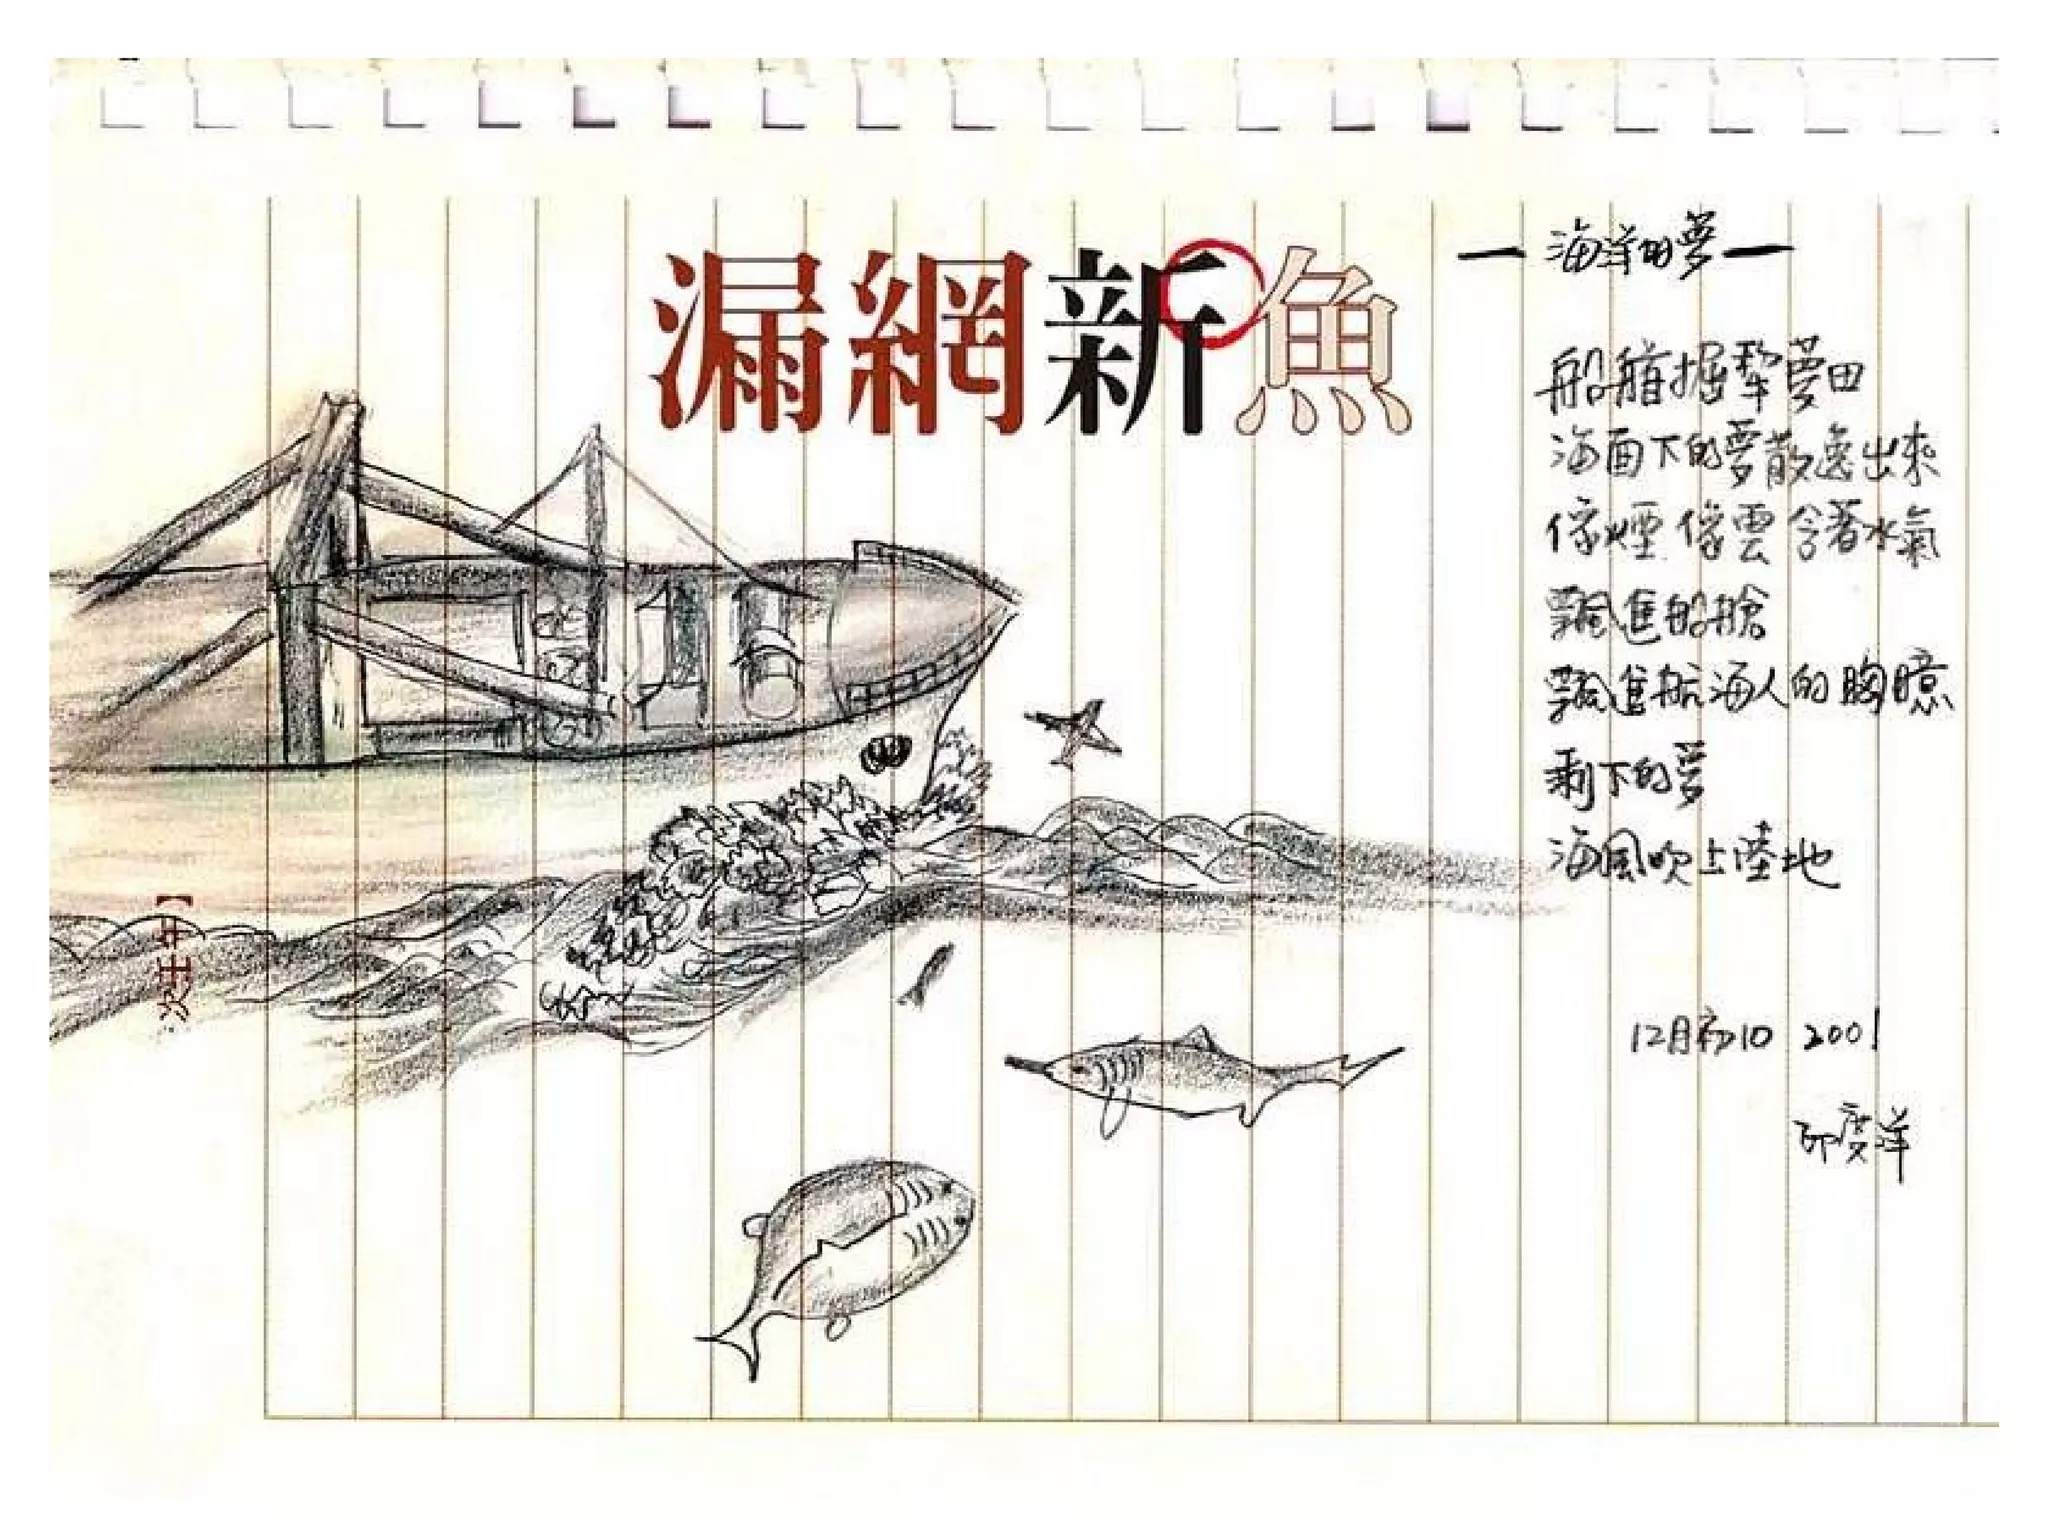 漏網新魚
— 海洋的夢 —
船艏掘犂夢田
海面下的夢散逸出來
像煙 像雲 含著水氣
飄進船艙
飄進航海人的胸臆
剩下的夢
海風吹上陸地
12月初10 2001
印度洋